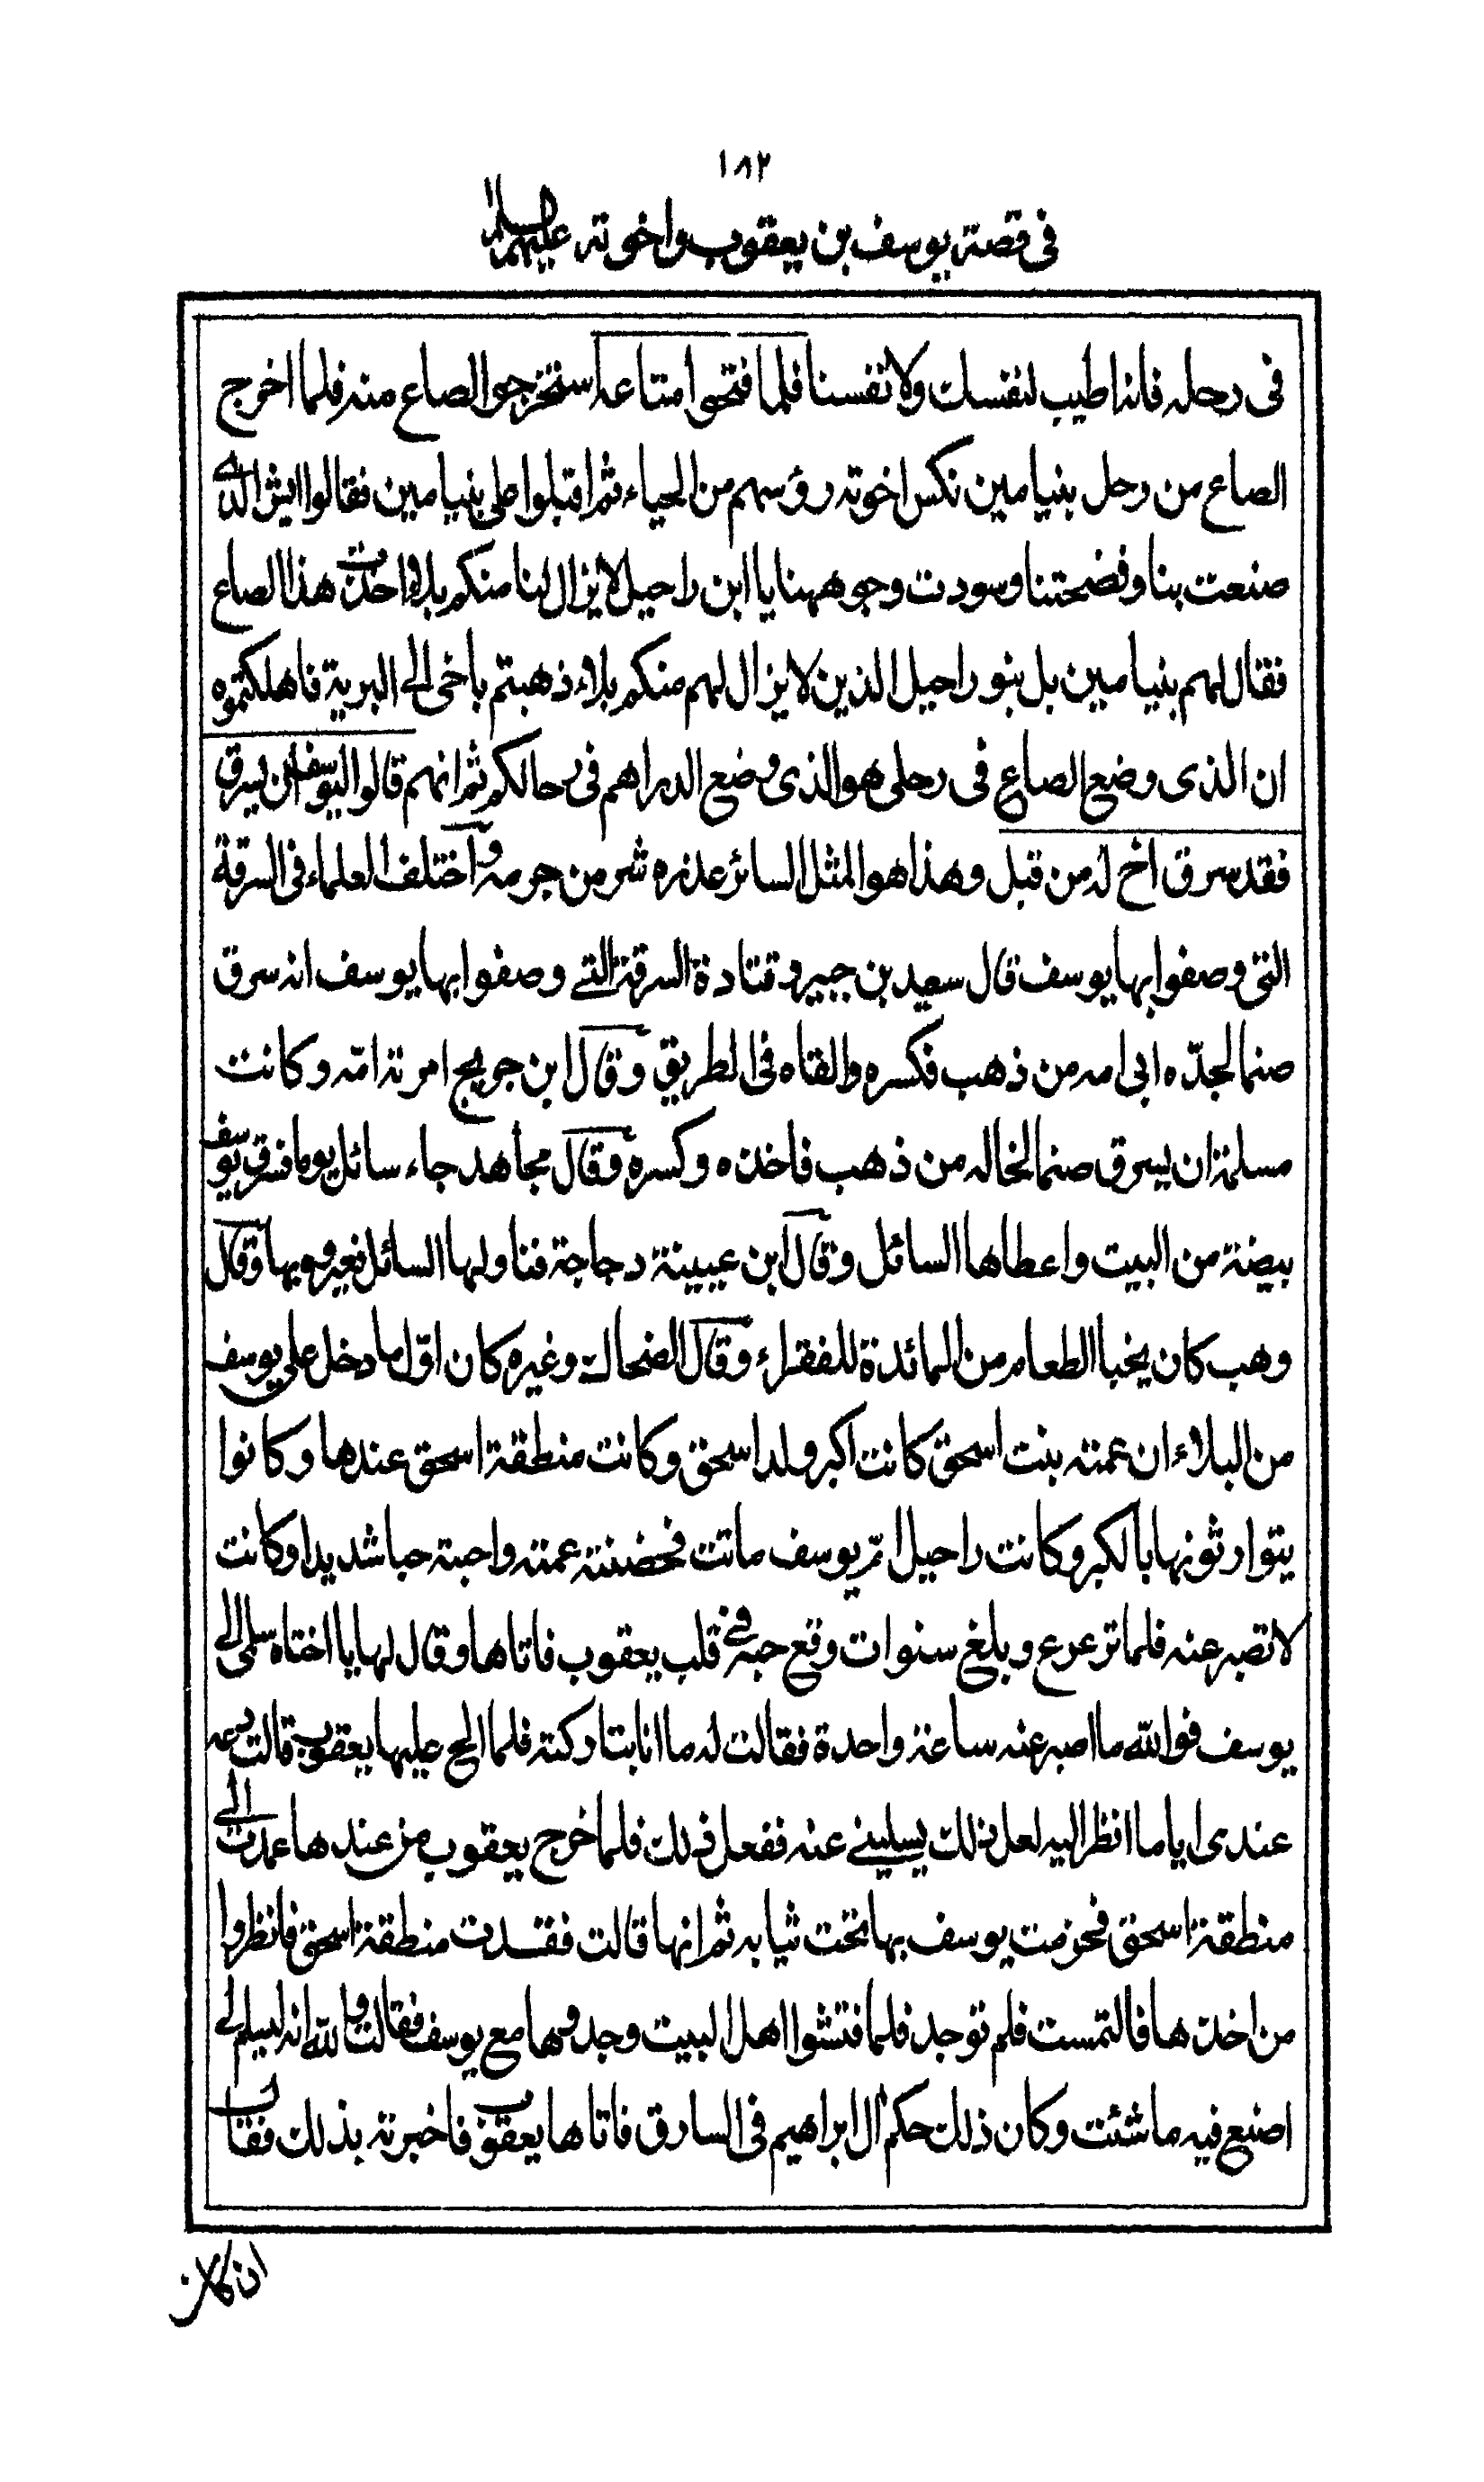 ١٨٢
في قصة يوسف بن يعقوب واخوته عليهم السلام
في رحله فانه اطيب لنفسك ولانفسنا فلما فتحوا متاعه استخرجوا الصاع منه فلما اخرج
الصاع من رحل بنيامين نكس اخوته رؤسهم من الحياء ثم اقبلوا على بنيامين فقالوا ايش الذى
صنعت بنا وفضحتنا وسودت وجوههنا يا ابن راحيل لا يزال لنا منكم بلاء اخذت هذا الصاع
فقال لهم بنيامين بل بنو راحيل الذين لا يزال لهم منكم بلاء ذهبتم باخى الى البرية فاهلكتموه
ان الذى وضع الصاع في رحلى هو الذى وضع الدراهم في رحالكم ثم انهم قالوا ليوسف ان يسرق
فقد سرق اخ له من قبل وهذا هو المثل السائر عذره شر من جرمه واختلف العلماء في السرقة
التي وصفوا بها يوسف قال سعيد بن جبير وقتادة السرقة التي وصفوا بها يوسف انه سرق
صنما لجدّه ابى امه من ذهب فكسره والقاه في الطريق وقال ابن جريج امرته امّه وكانت
مسلمة ان يسرق صنما لخاله من ذهب فاخذه وكسره وقال مجاهد جاء سائل يوما فسرق يوسف
بيضة من البيت واعطاها السائل وقال ابن عيينة دجاجة فناولها السائل فعيروه بها وقال
وهب كان يخبا الطعام من المائدة للفقراء وقال الضحاك وغيره كان اوّل ما دخل على يوسف
من البلاء ان عمته بنت اسحق كانت اكبر ولد اسحق وكانت منطقة اسحق عندها وكانوا
يتوارثونها بالكبر وكانت راحيل امّ يوسف ماتت فحضنته عمته واحبته حبا شديدا وكانت
لا تصبر عنه فلما ترعرع وبلغ سنوات وقع حبه في قلب يعقوب فاتاها وقال لها يا اختاه سلمى الى
يوسف فوالله ما اصبر عنه ساعة واحدة فقالت له ما انا بتاركته فلما الح عليها يعقوب قالت دعه
عندى اياما انظر اليه لعل ذلك يسلينى عنه ففعل ذلك فلما خرج يعقوب من عندها عمدت الى
منطقة اسحق فحزمت يوسف بها تحت ثيابه ثم انها قالت فقدت منطقة اسحق فانظروا
من اخذها فالتمست فلم توجد فلما فتشوا اهل البيت وجدوها مع يوسف فقالت والله انه ليسلم لى
اصنع فيه ما شئت وكان ذلك حكم ال ابراهيم في السارق فاتاها يعقوب فاخبرته بذلك فقال
ان كان